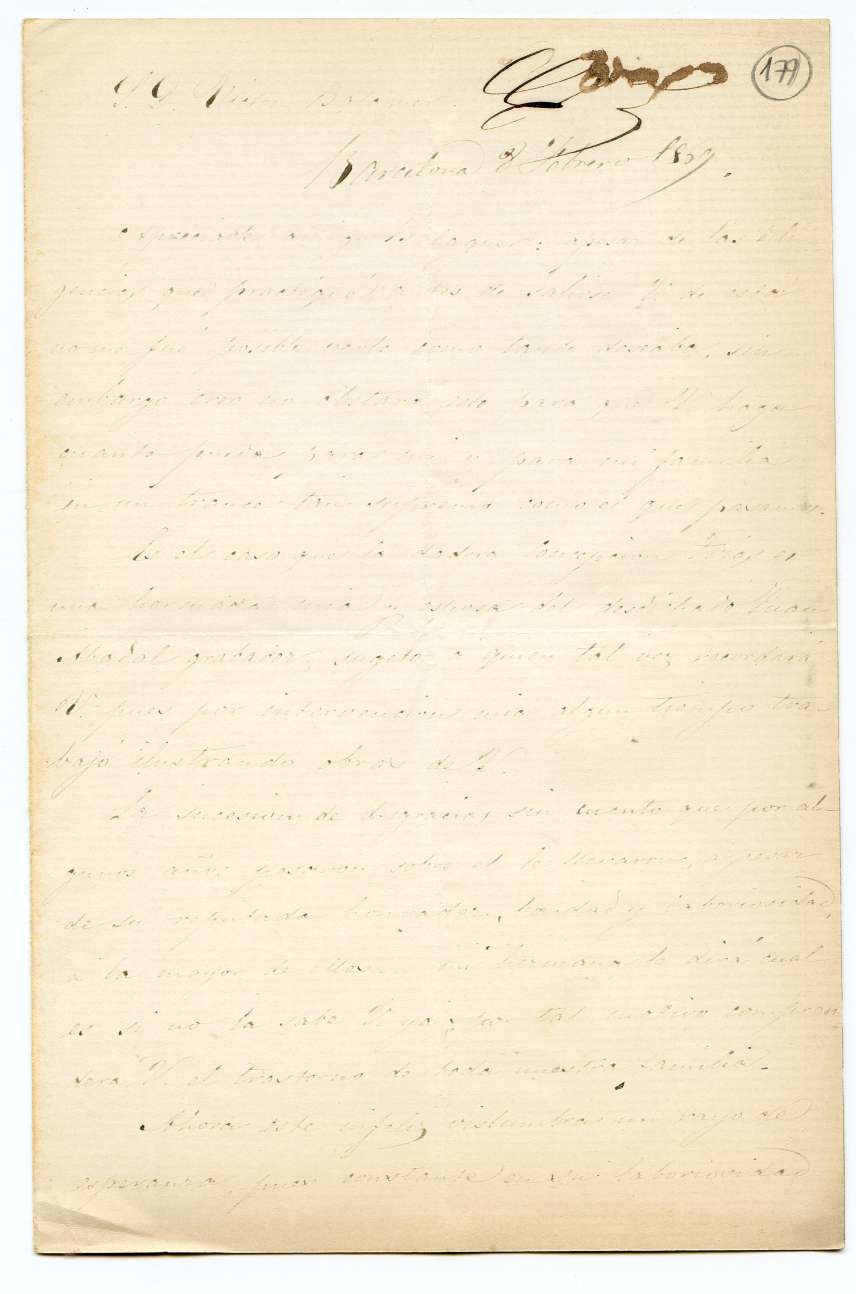 179
Sr. D. Victor Balaguer.
Barcelona 8 Febrero 1879.
Apreciable amigo Balaguer: apesar de las dili-
gencias que practiqué antes de salirse V. de esta
no me fué posible verle como tanto deseaba, sin
embargo creo no obstará esto para que V. haga
cuanto pueda para mi y para mi familia
en un trance tan supremo como el que pasamos.
Es el caso que la dadora Concepcion es
una hermana mia y esposa del desdichado Juan
Abadal grabador, sugeto á quien tal vez recordará
V. pues por intervencion mia algun tiempo tra-
bajó ilustrando obras de V.
La sucesion de desgracias sin cuento que por al-
gunos años pesaron sobre el le llevaron, a pesar
de su reputada honradez, bondad y laboriosidad,
á la mayor de ellas. mi hermana le dirá cual
es si no la sabe V. ya; por tal motivo compren-
derá V. el trastorno de toda nuestra familia.
Ahora este infeliz vislumbra un rayo de
esperanza, pues constante en su laboriosidad